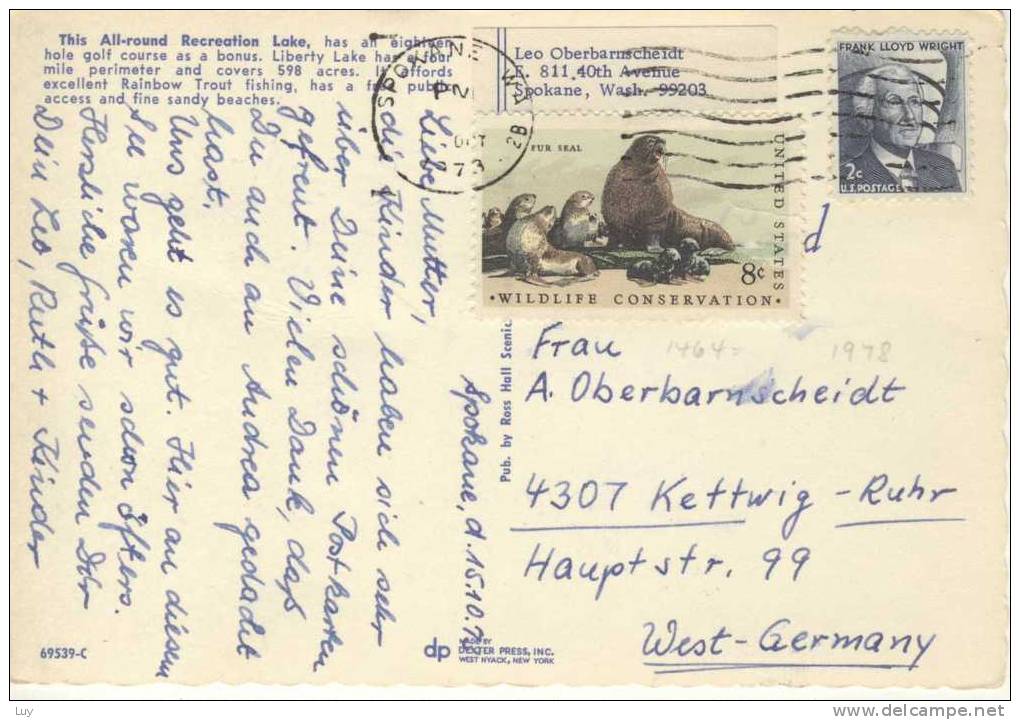 This All-round Recreation Lake, has an eighteen
hole golf course as a bonus. Liberty Lake has a four
mile perimeter and covers 598 acres. It affords
excellent Rainbow Trout fishing, has a free public
access and fine sandy beaches.
Leo Oberbarnscheidt
E. 811 40th Avenue
Spokane, Wash. 99203
SPOKANE WA
1973
FRANK LLOYD WRIGHT
2c
U.S. POSTAGE
FUR SEAL
UNITED STATES
8c
• WILDLIFE CONSERVATION •
Spokane, d. 15.10.
Liebe Mutter,
die Kinder haben sich sehr
über Deine schönen Postkarten
gefreut. Vielen Dank, daß
Du auch an Andrea gedacht
hast.
Uns geht es gut. Hier an diesem
See waren wir schon öfters.
Herzliche Grüße senden Dir
Dein Leo, Ruth + Kinder
d
1464=
1978
Frau
A. Oberbarnscheidt
4307 Kettwig-Ruhr
Hauptstr. 99
West-Germany
Pub. by Ross Hall Scenic
69539-C
dp
MADE BY
DEXTER PRESS, INC.
WEST NYACK, NEW YORK
Luy
www.delcampe.net